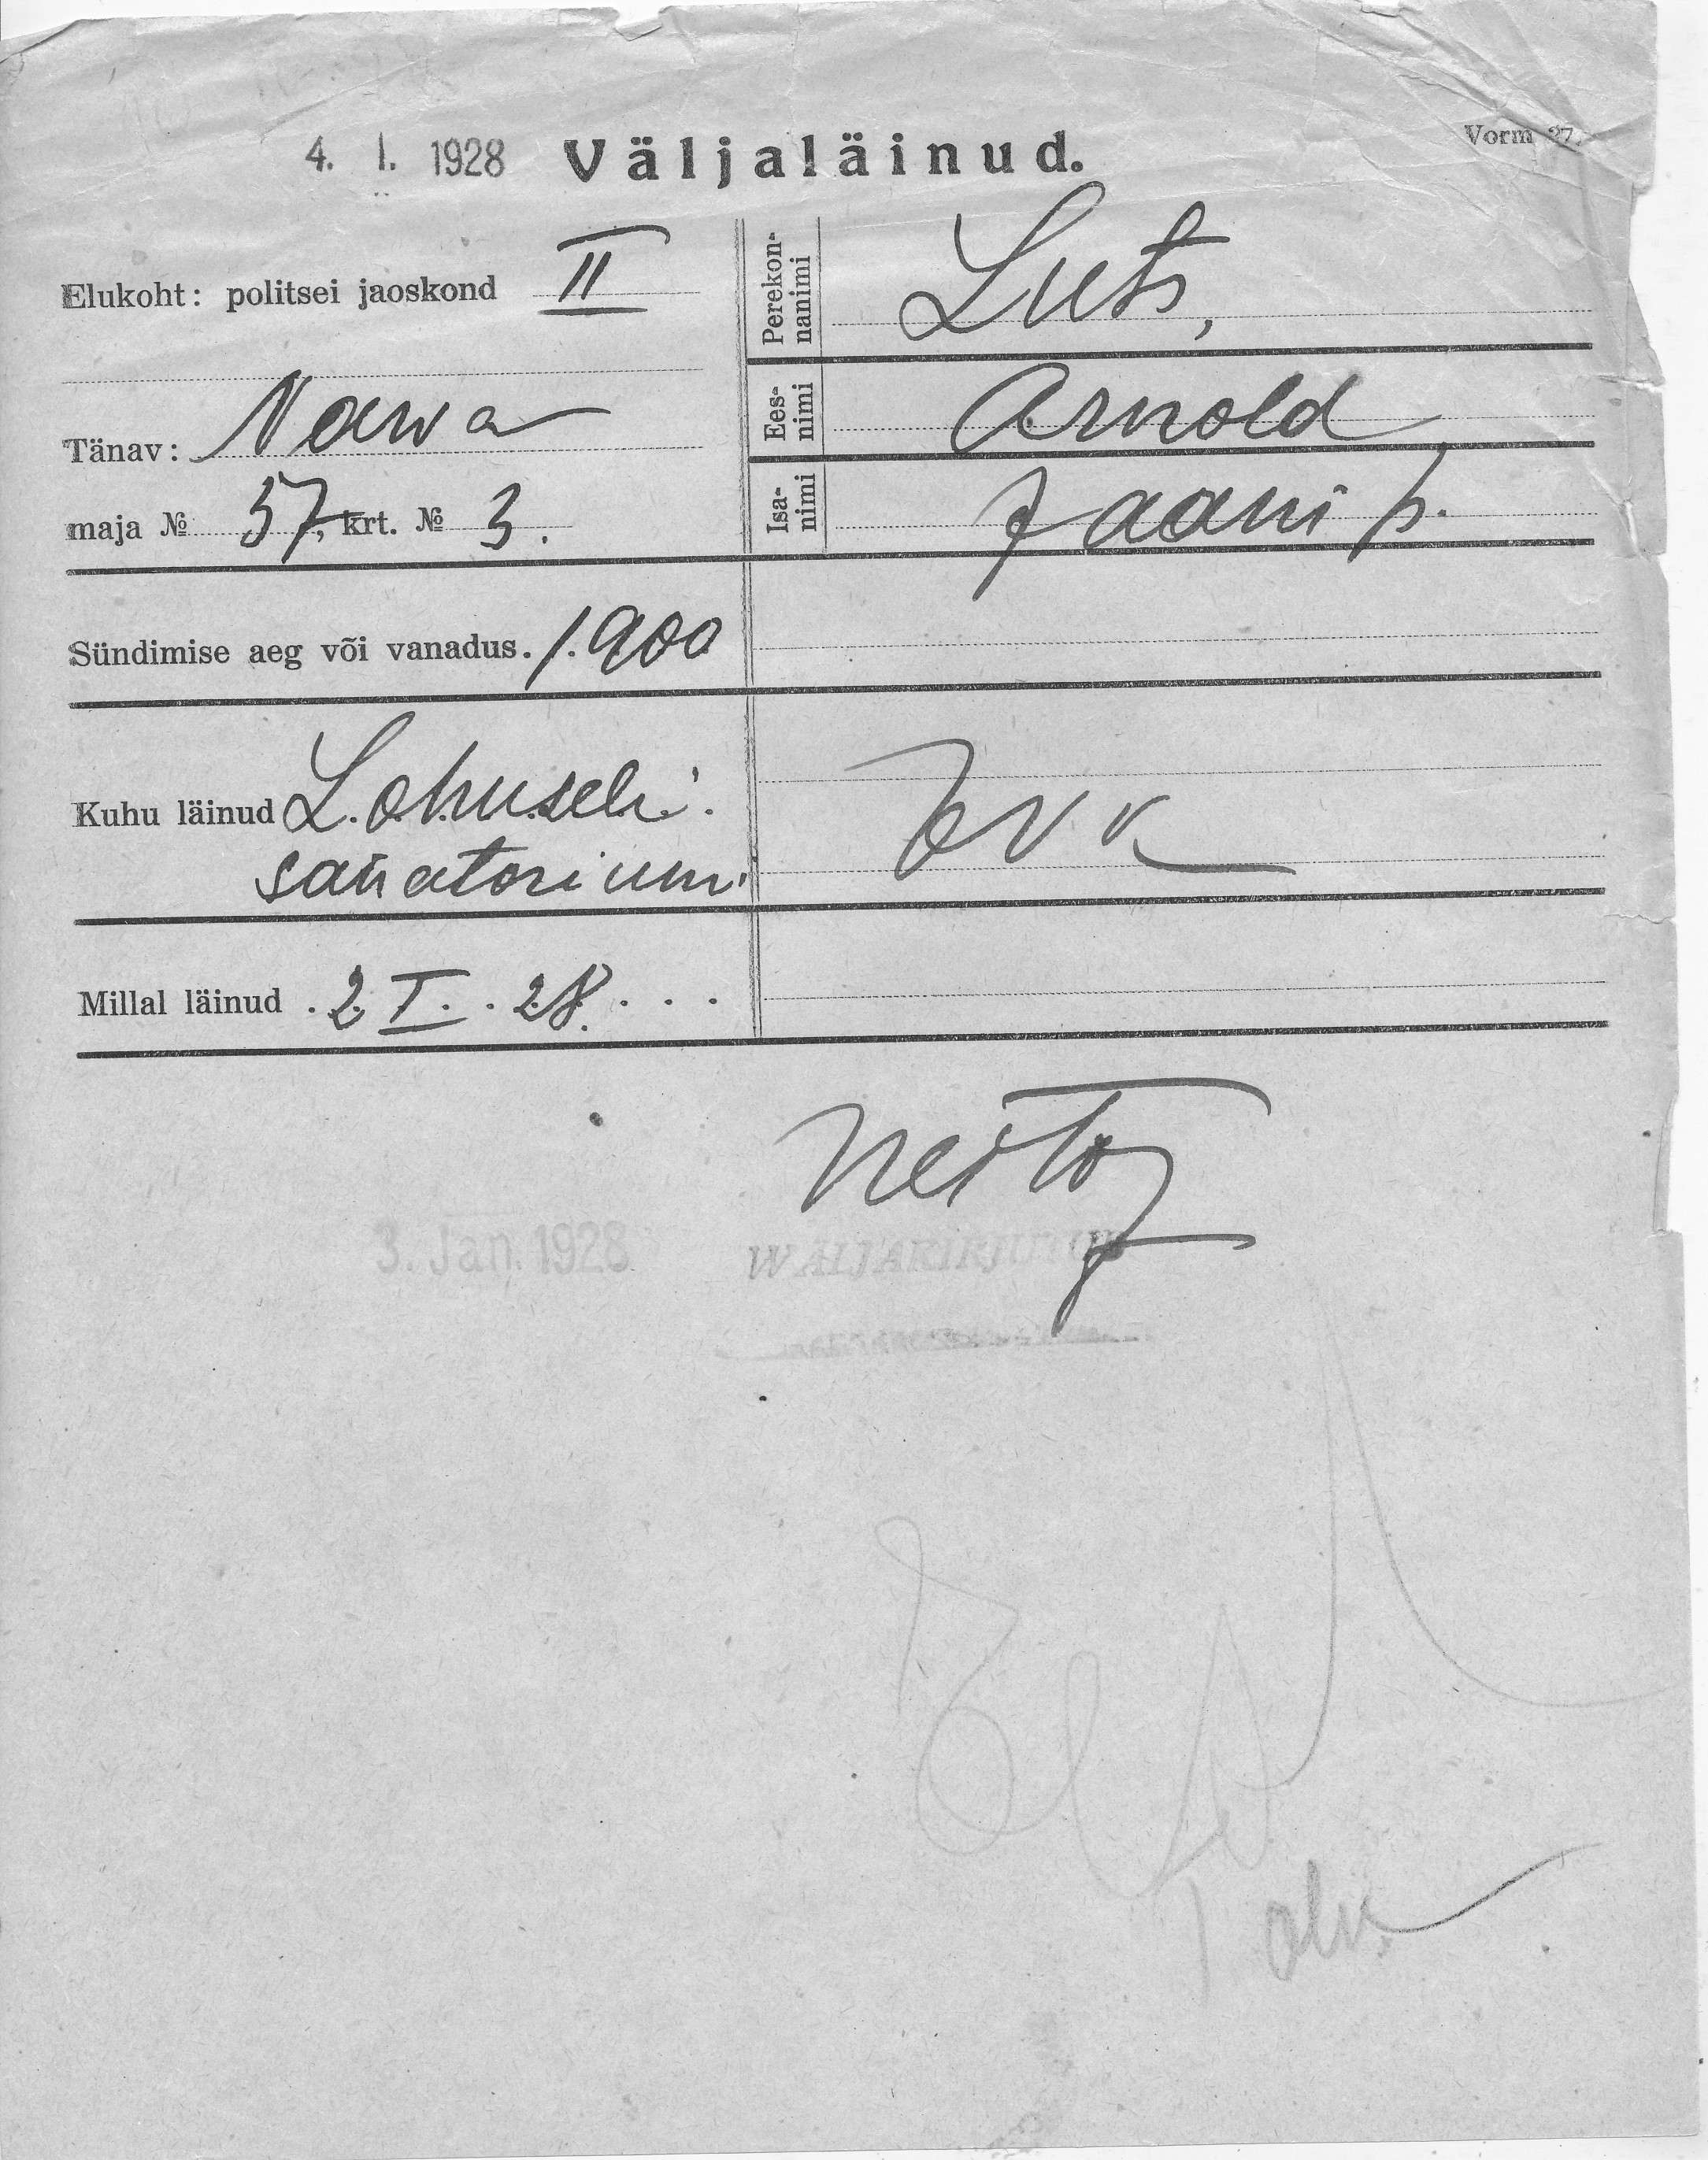 Vorm 27.
4. I. 1928 Väljaläinud.
Elukoht: politsei jaoskond II
Tänav: Narva
maja № 57, krt. № 3.
Perekon-
nanimi
Luts,
Ees-
nimi
Arnold
Isa-
nimi
Jaani p.
Sündimise aeg või vanadus. 1900
Kuhu läinud Lohuselu
sanatorium.
Millal läinud 2 I. 28.
3. Jan. 1928 WÄLJAKIRJUTUD